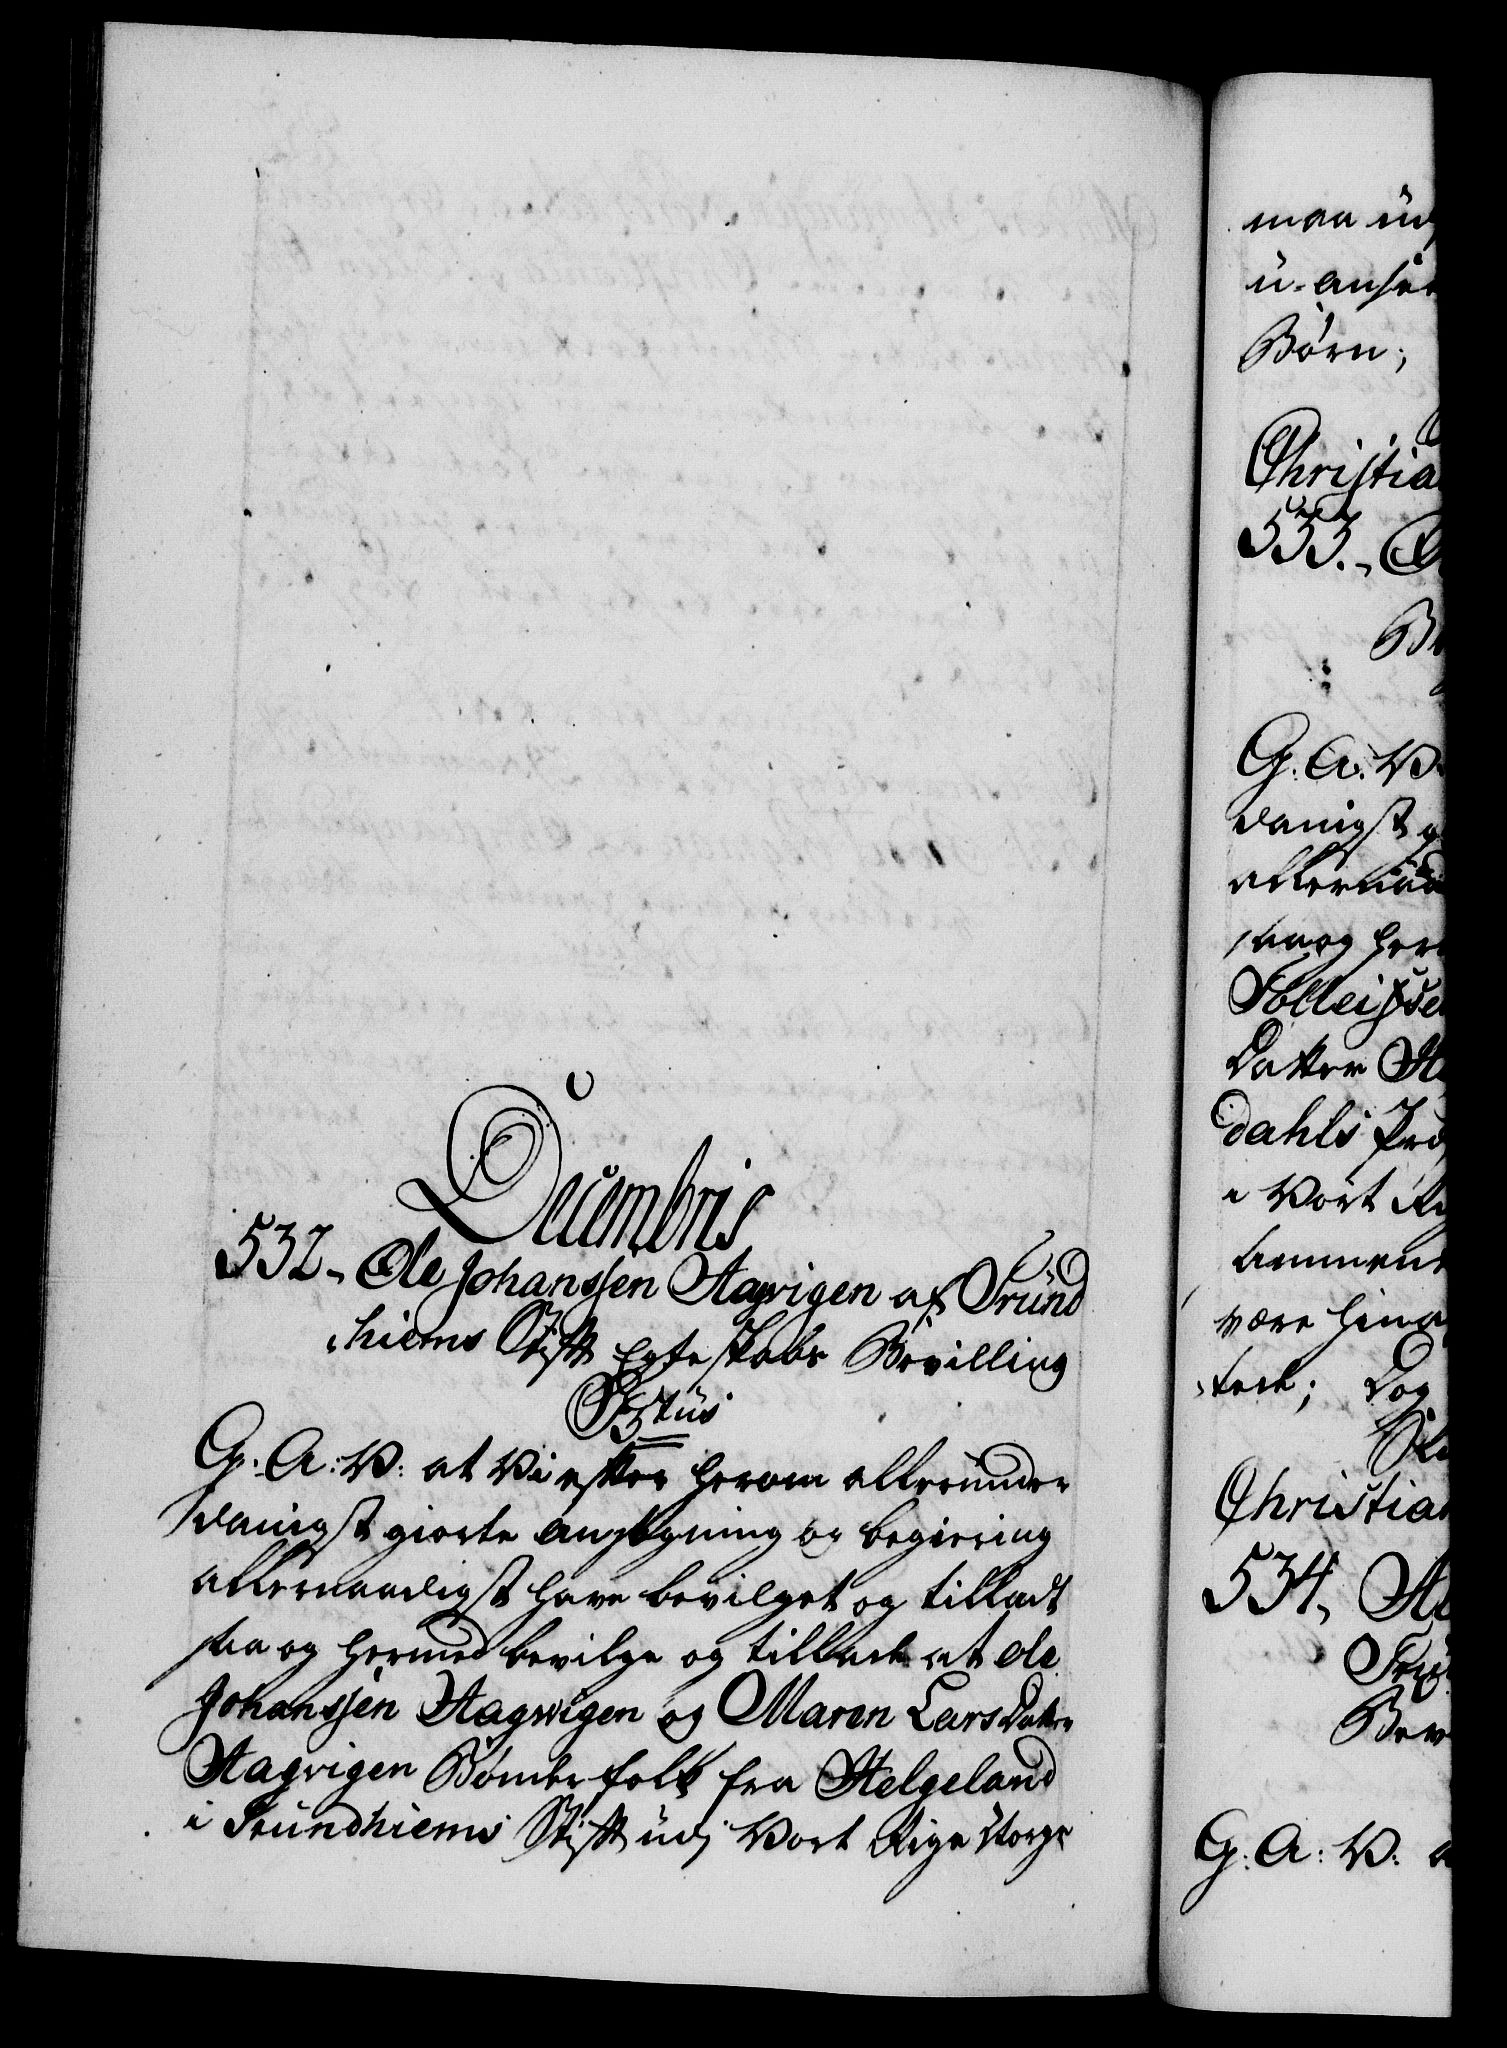 Decembris
532. Ole Johanssen Hagvigen af Trund
hiems Stift Egteskabs Bevilling
G. A: V: at Vi efter herom allerunder
danigst giorte ansøgning og begiering
allernaadigst have bevilget og tilladt
saa og hermed bevilge og tillade at Ole
Johanssen Hagvigen og Maren Lars Datter
Hagvigen Bønderfolk fra Helgeland
i Trundhiems Stift udj Vort Rige Norge
maa ud
u-ansee
Børn;
Christia
533.
G. A. V.
danigst g
allernaad
saa og her
Tolleifse
Datter
dahls
i Vort Ri
være hin
Dog
Christian
534.
Bev
G: A: V: a